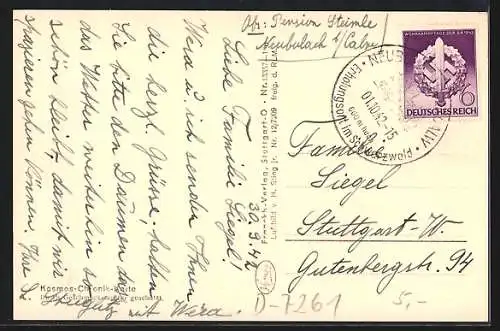 Abs: Pension Steimle
Neubulach b/Calw.
Liebe Familie Siegel!
Vera u. ich senden Ihnen
die herzl. Grüsse, halten
Sie bitte den Daumen daß
das Wetter weiter hin so
schön bleibt, damit wir
spazieren gehen können. Ihre
mit Vera.
30.9.42
Kosmos-Chronik-Karte
Franckh-Verlag, Stuttgart-O.
Luftbild v. H. Sting jr. Nr. 12/7209 freig. d. RLM
WEHRKAMPFTAGE DER SA 1942
6
DEUTSCHES REICH
NEUB
01.10.42-15
Erholungsort im
Schwarzwald
Familie
Siegel
Stuttgart-W.
Gutenbergstr. 94
D-7261
5,-